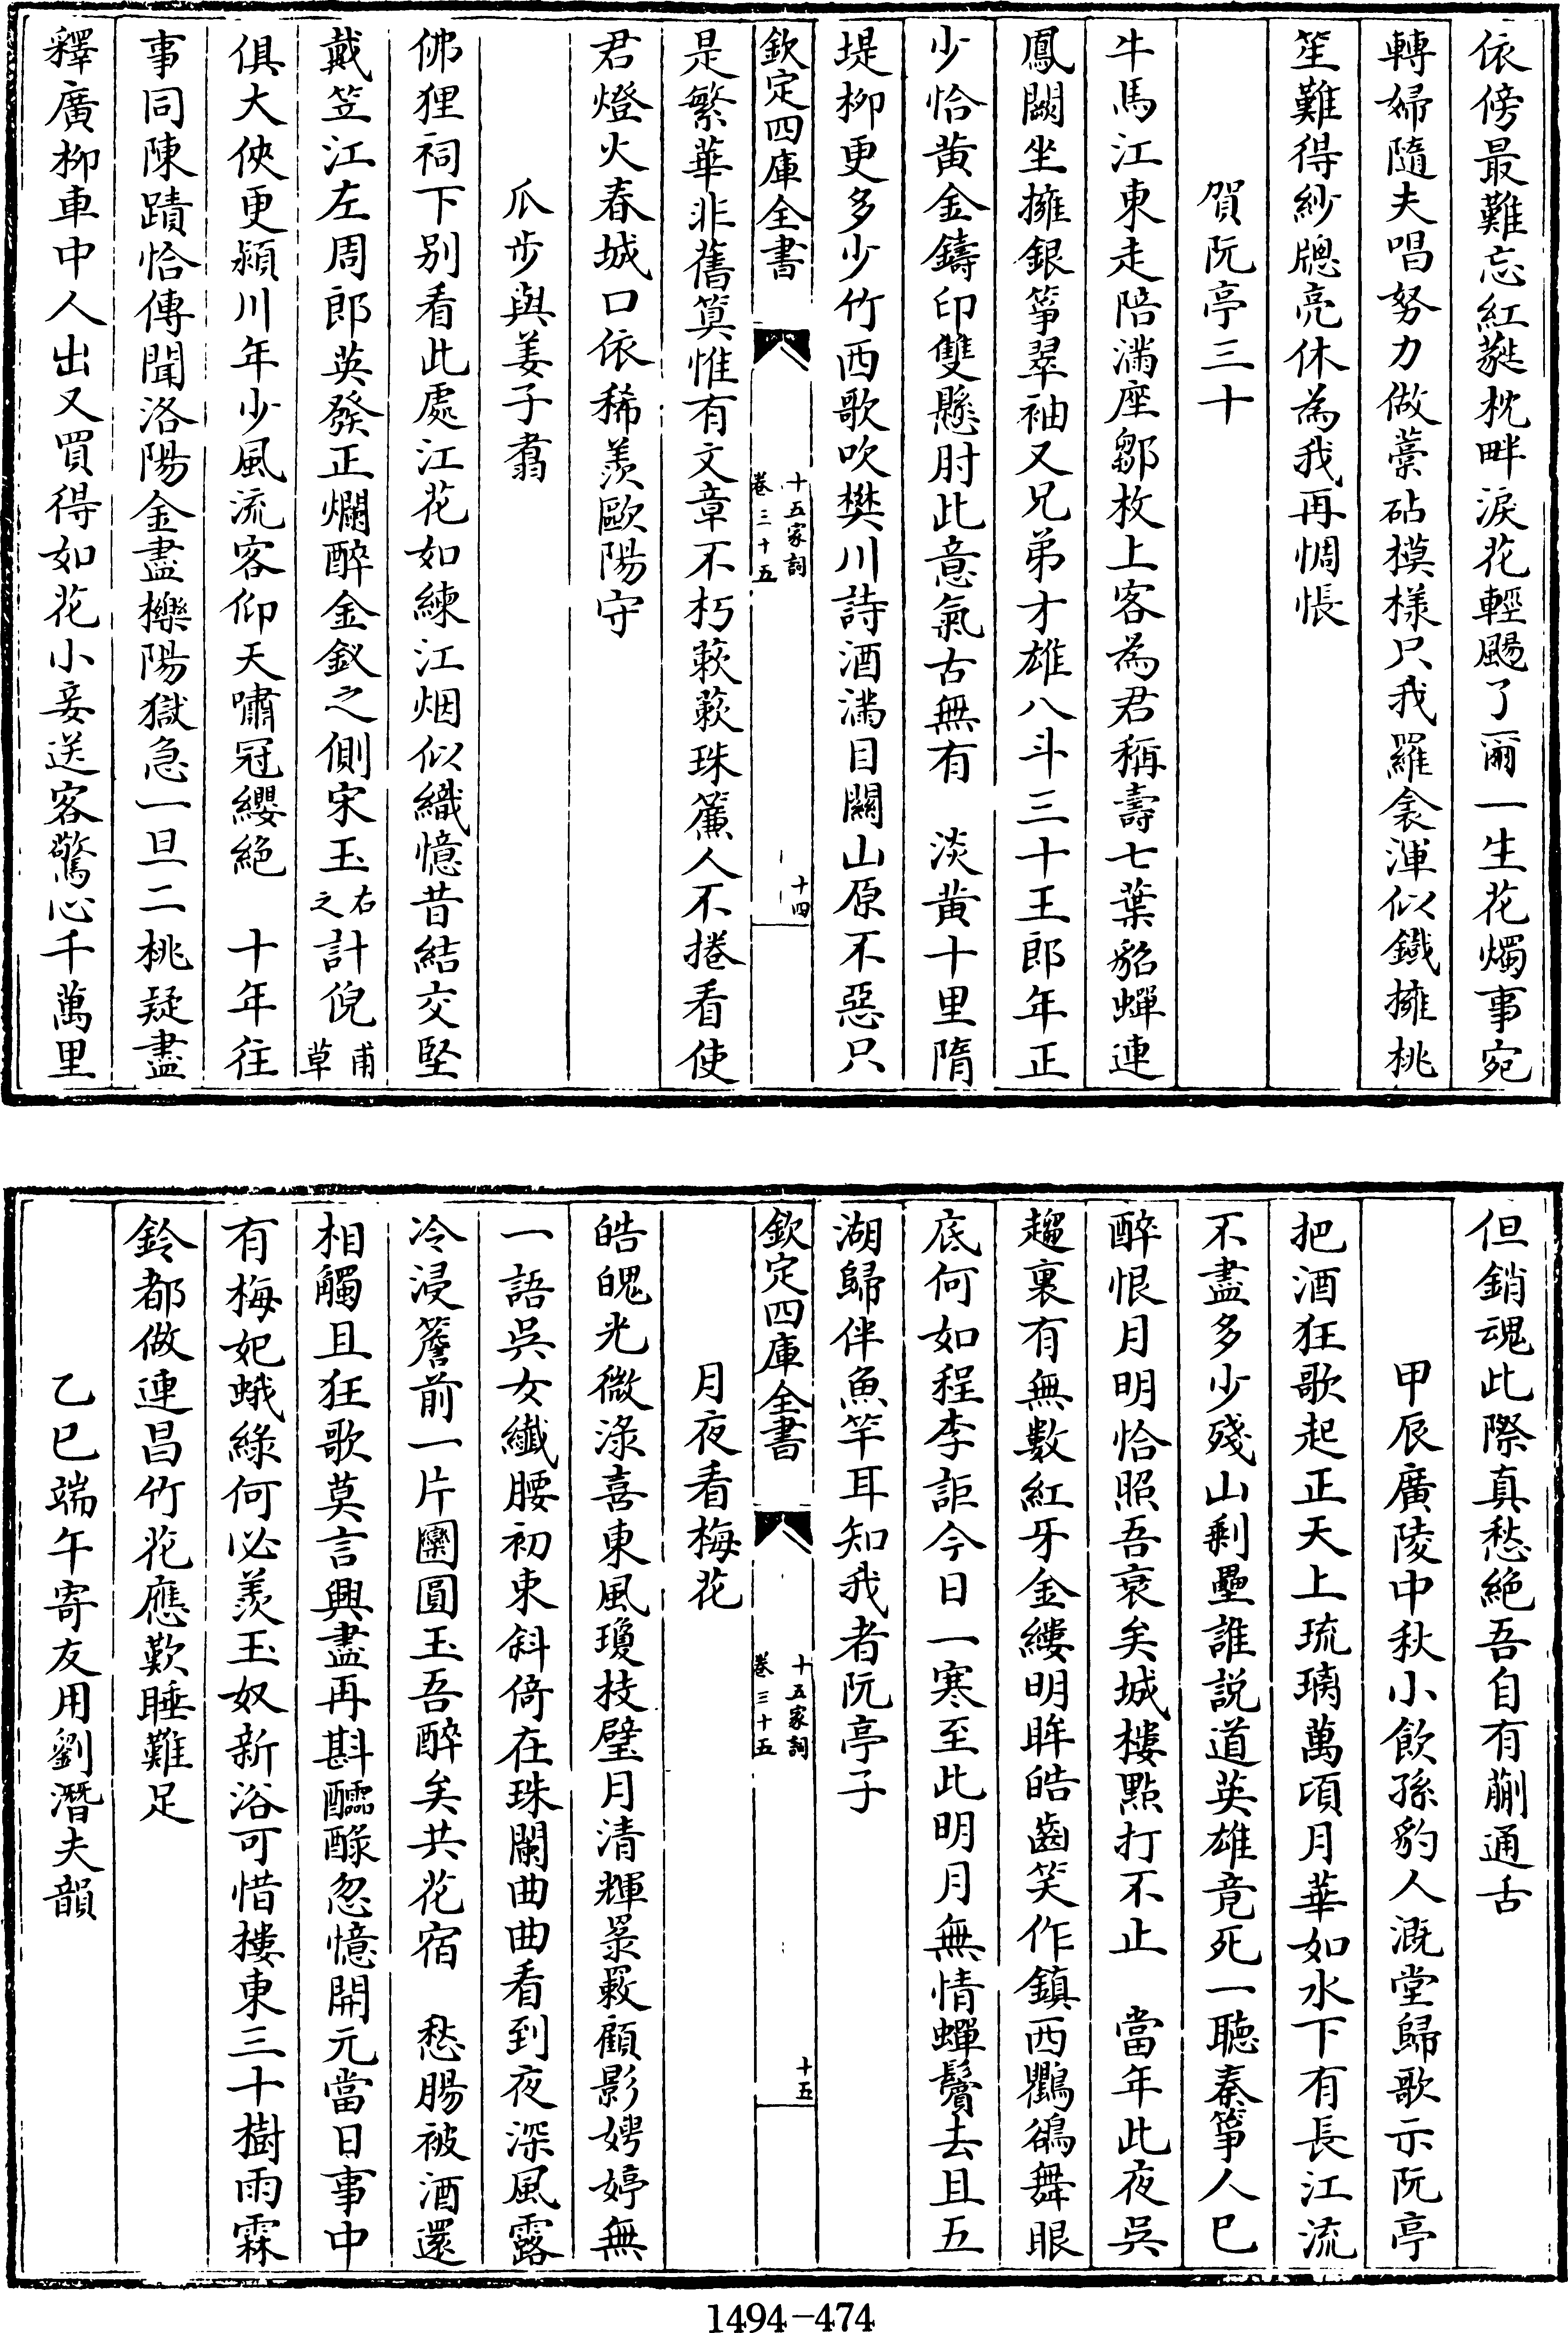 依傍最難忘紅蕤枕畔淚花輕颺了爾一生花燭事宛
轉婦隨夫唱努力做藁砧模樣只我羅衾渾似鐵擁桃
笙難得紗牕亮休為我再惆悵
賀阮亭三十
牛馬江東走陪滿座鄒枚上客為君稱壽七葉貂蟬連
鳳闕坐擁銀箏翠袖又兄弟才雄八斗三十王郎年正
少恰黄金鑄印雙懸肘此意氣古無有　淡黄十里隋
堤柳更多少竹西歌吹樊川詩酒滿目闗山原不惡只
欽定四庫全書
十五家詞
卷三十五
十四
是繁華非舊筭惟有文章不朽蔌蔌珠簾人不捲看使
君燈火春城口依稀羨歐陽守
瓜步與姜子翥
佛狸祠下别看此處江花如練江烟似織憶昔結交堅
戴笠江左周郎英發正爛醉金釵之側宋玉右之計倪甫草
俱大俠更潁川年少風流客仰天嘯冠纓絶　十年往
事同陳蹟恰傳聞洛陽金盡櫟陽獄急一旦二桃疑盡
釋廣柳車中人出又買得如花小妾送客驚心千萬里
但銷魂此際真愁絶吾自有蒯通舌
甲辰廣陵中秋小飲孫豹人溉堂歸歌示阮亭
把酒狂歌起正天上琉璃萬頃月華如水下有長江流
不盡多少殘山剩壘誰説道英雄竟死一聽秦箏人已
醉恨月明恰照吾衰矣城樓點打不止　當年此夜吳
趨裏有無數紅牙金縷明眸皓齒笑作鎮西鸜鵒舞眼
底何如程李詎今日一寒至此明月無情蟬鬢去且五
湖歸伴魚竿耳知我者阮亭子
欽定四庫全書
十五家詞
卷三十五
十五
月夜看梅花
皓魄光微淥喜東風瓊枝璧月清輝㫷㲉顧影娉婷無
一語吳女纖腰初束斜倚在珠闌曲曲看到夜深風露
冷浸簷前一片團圓玉吾醉矣共花宿　愁腸被酒還
相觸且狂歌莫言興盡再斟醽醁忽憶開元當日事中
有梅妃蛾綠何必羨玉奴新浴可惜樓東三十樹雨霖
鈴都做連昌竹花應歎睡難足
乙巳端午寄友用劉潛夫韻
1494-474